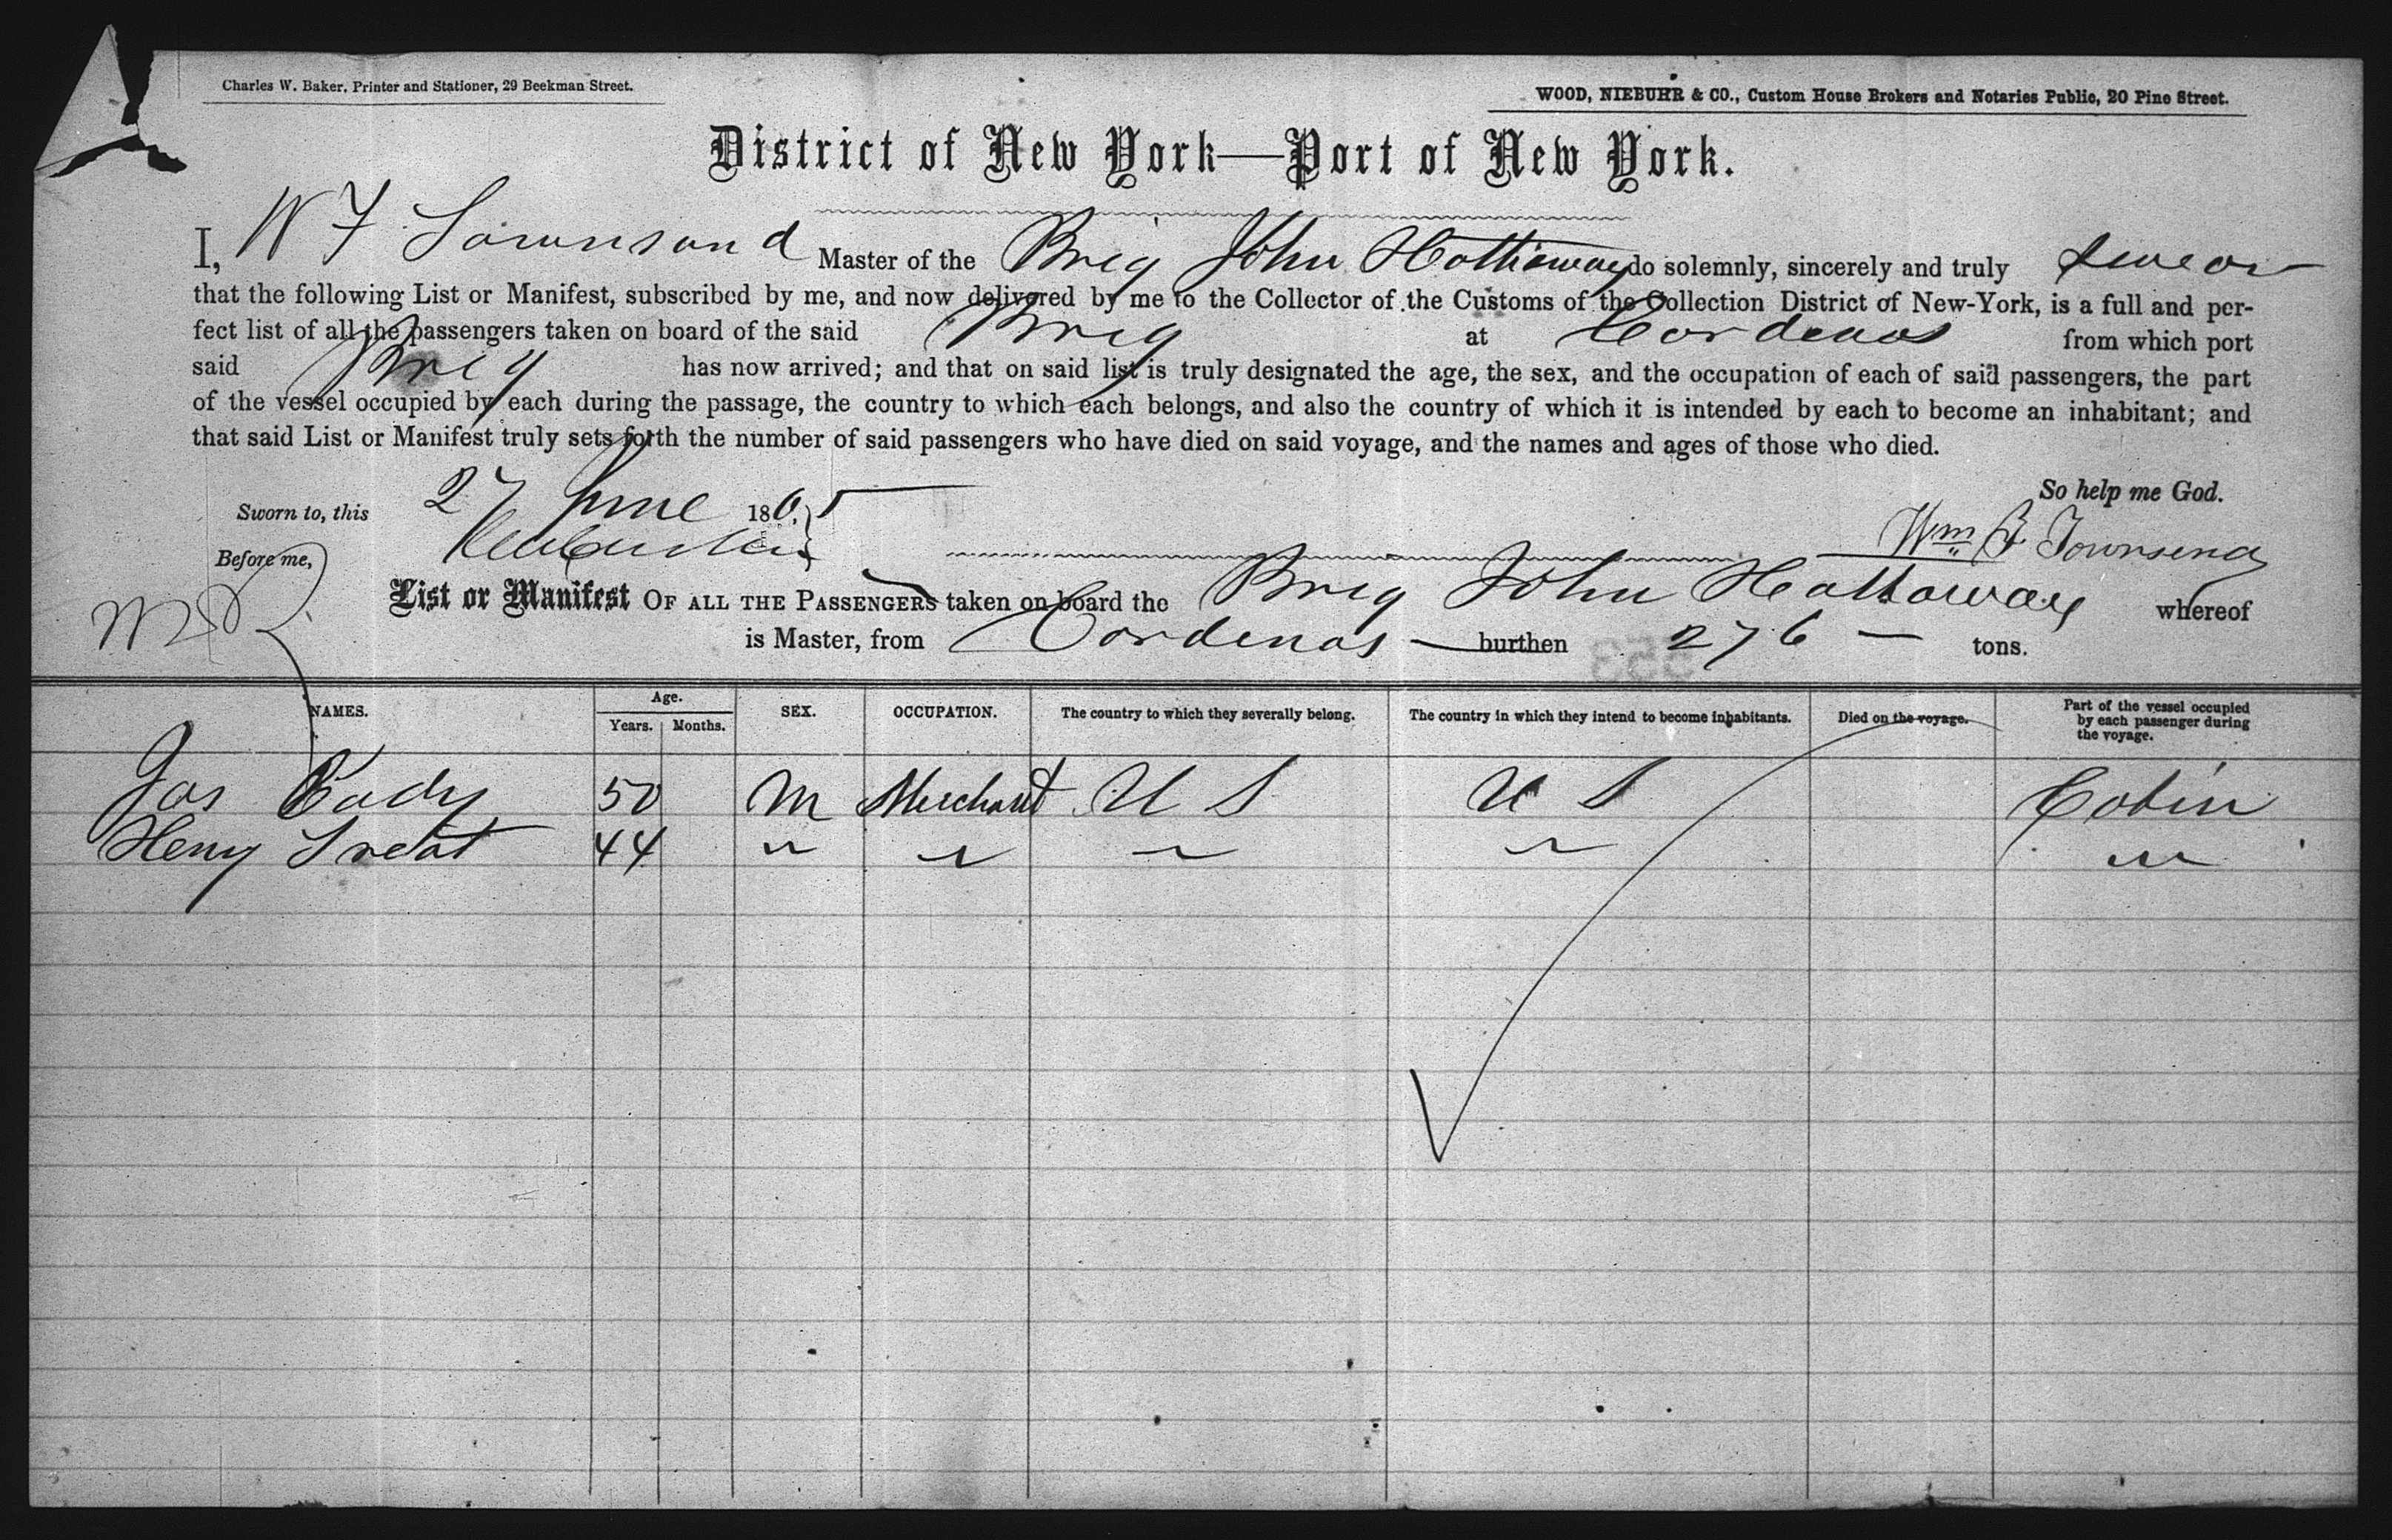 Charles W. Baker, Printer and Stationer, 29 Beekman Street.
WOOD, NIEBUHR & CO., Custom House Brokers and Notaries Public, 20 Pine Street.
District of New York—Port of New York.
I, W F Townsend Master of the Brig John Hathaway do solemnly, sincerely and truly swear
that the following List or Manifest, subscribed by me, and now delivered by me to the Collector of the Customs of the Collection District of New-York, is a full and per-
fect list of all the passengers taken on board of the said Brig at Cardenas from which port
said Brig has now arrived; and that on said list is truly designated the age, the sex, and the occupation of each of said passengers, the part
of the vessel occupied by each during the passage, the country to which each belongs, and also the country of which it is intended by each to become an inhabitant; and
that said List or Manifest truly sets forth the number of said passengers who have died on said voyage, and the names and ages of those who died.
So help me God.
Sworn to, this 27 June 1865
Before me, Wm F. Townsend
List or Manifest OF ALL THE PASSENGERS taken on board the Brig John Hathaway whereof
is Master, from Cardenas burthen 276 tons.
NAMES. Age. Years. Months. SEX. OCCUPATION. The country to which they severally belong. The country in which they intend to become inhabitants. Died on the voyage. Part of the vessel occupied by each passenger during the voyage.
Jas Cady 50 M Merchant U S U S Cabin
Henry Treat 44 " " " " "